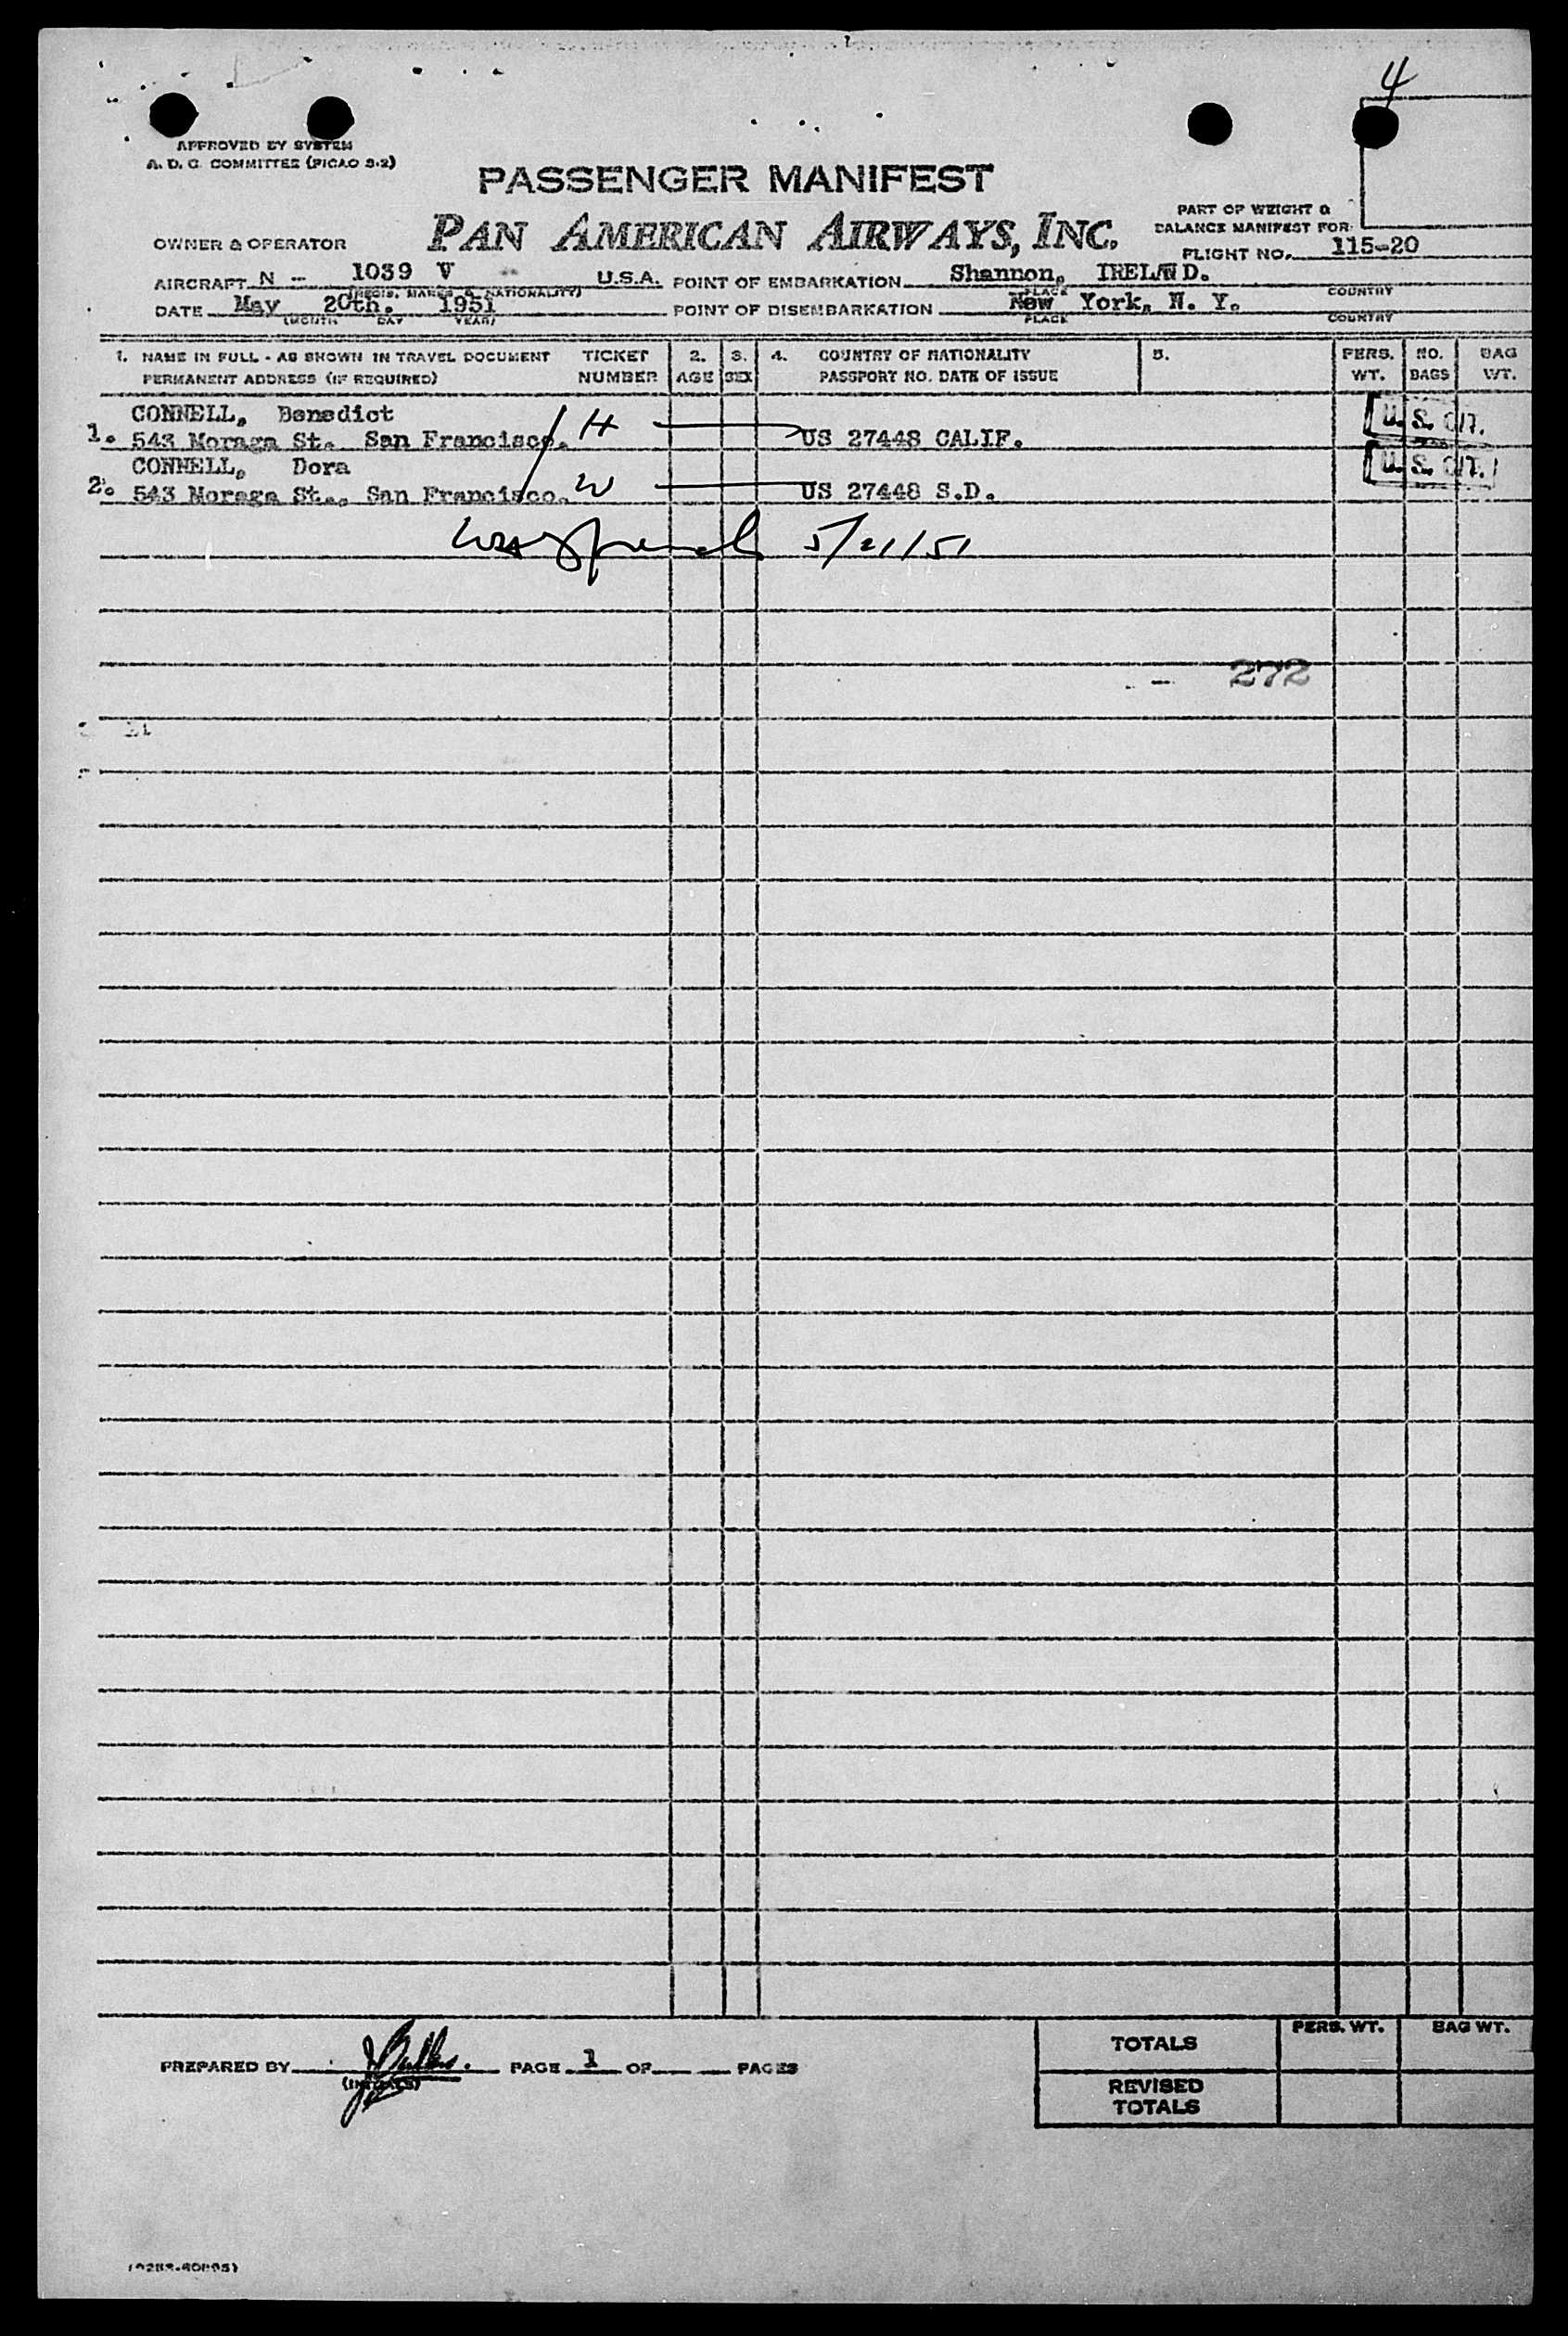 4
APPROVED BY SYSTEM
A. D. C. COMMITTEE (PICAO 3-2)
PASSENGER MANIFEST
PAN AMERICAN AIRWAYS, INC.
PART OF WEIGHT &
BALANCE MANIFEST FOR
OWNER & OPERATOR
FLIGHT NO. 115-20
AIRCRAFT N - 1039 V U.S.A. POINT OF EMBARKATION Shannon, IRELAND.
(REGIS. MARKS & NATIONALITY) PLACE COUNTRY
DATE May 20th. 1951 POINT OF DISEMBARKATION New York, N. Y.
(MONTH DAY YEAR) PLACE COUNTRY
1. NAME IN FULL - AS SHOWN IN TRAVEL DOCUMENT TICKET 2. 3. 4. COUNTRY OF NATIONALITY 5. PERS. NO. BAG
PERMANENT ADDRESS (IF REQUIRED) NUMBER AGE SEX PASSPORT NO. DATE OF ISSUE WT. BAGS WT.
CONNELL, Benedict
1. 543 Moraga St. San Francisco. H US 27448 CALIF. U. S. CIT.
CONNELL, Dora
2. 543 Moraga St., San Francisco. W US 27448 S.D. U. S. CIT.
5/21/51
- 272
PREPARED BY PAGE 1 OF PAGES
(INITIALS)
TOTALS PERS. WT. BAG WT.
REVISED
TOTALS